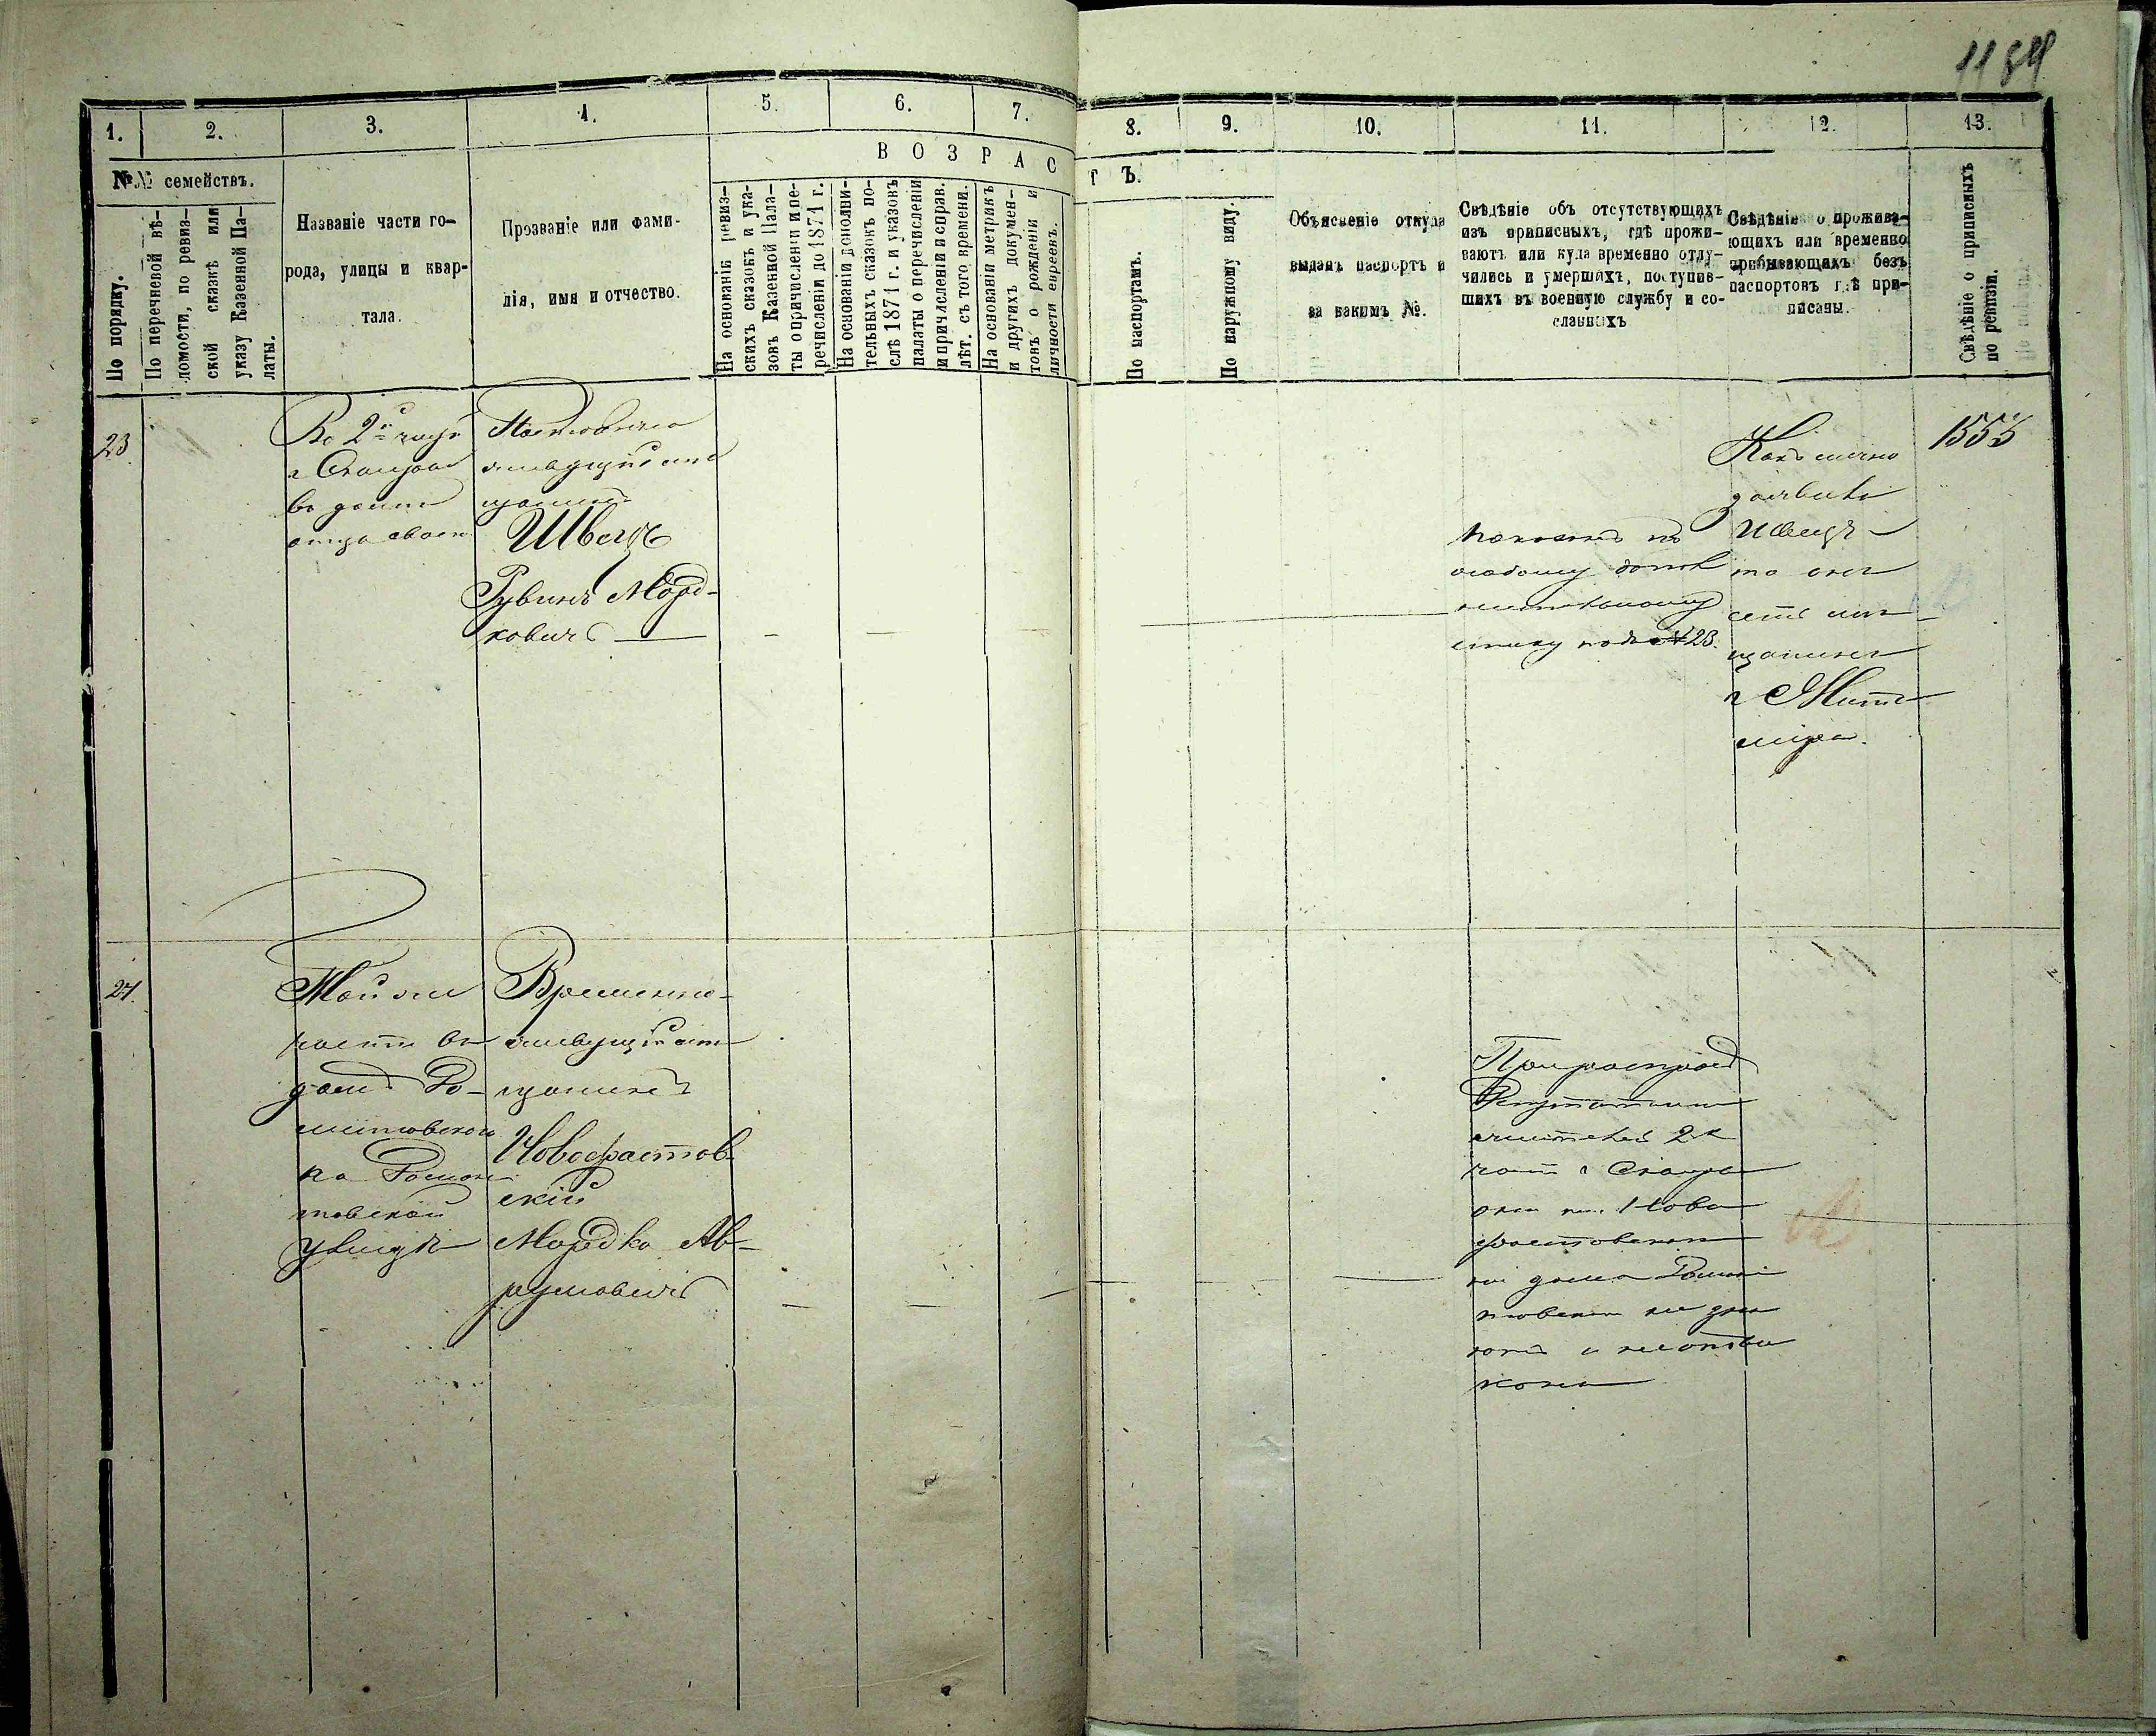 1184
1. 2. 3. 4. 5. 6. 7. 8. 9. 10. 11. 12. 13.
ВОЗРАСТЪ.
№№ семействъ.
По порядку.
По перечневой вѣ-
домости, по ревиз-
ской сказкѣ или
указу Казенной Па-
латы.
Названіе части го-
рода, улицы и квар-
тала.
Прозваніе или фами-
лія, имя и отчество.
На основаніи ревиз-
скихъ сказокъ и ука-
зовъ Казенной Пала-
ты о причисленіи и пе-
речисленіи до 1871 г.
На основаніи дополни-
тельныхъ сказокъ по-
слѣ 1871 г. и указовъ
палаты о перечисленіи
и причисленіи и справ.
лѣт. съ того времени.
На основаніи метрикъ
и другихъ докумен-
товъ о рожденіи и
личности евреевъ.
По паспортамъ.
По наружному виду.
Объясненіе откуда
выданъ паспортъ и
за какимъ №.
Свѣдѣніе объ отсутствующихъ
изъ приписныхъ, гдѣ прожи-
ваютъ или куда временно отлу-
чились и умершихъ, поступив-
шихъ въ военную службу и со-
сланныхъ
Свѣдѣніе о прожива-
ющихъ или временно
прибывающихъ безъ
паспортовъ гдѣ при-
писаны.
Свѣдѣніе о приписныхъ
по ревизіи.
23.
Во 2й части
г Сквира
въ домѣ
отца своего
Постоянно
живущій мѣ
щанинъ
Швецъ
Рувинъ Морд-
ковичъ
Показанъ по
особому допол
нительному
списку подъ № 23.
Какъ лично
заявилъ
Швецъ
то онъ
есть мѣ
щанинъ
г Жито
міра.
1553
24.
Той же
части въ
домѣ
на
улицѣ
Временно-
живущій мѣ
щанинъ
Новофастов-
скій
Мордко Ав-
румовичъ
части г Сквира
Ново
фастовскій
дома